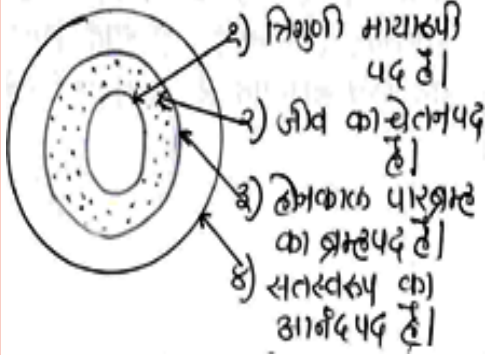 १) त्रिगुणी मायारुपी
पद हैं।
२) जीव का चेतनपद
हैं।
३) होनकाल पारब्रम्ह
का ब्रम्हपद हैं।
४) सतस्वरुप का
आनंदपद हैं।